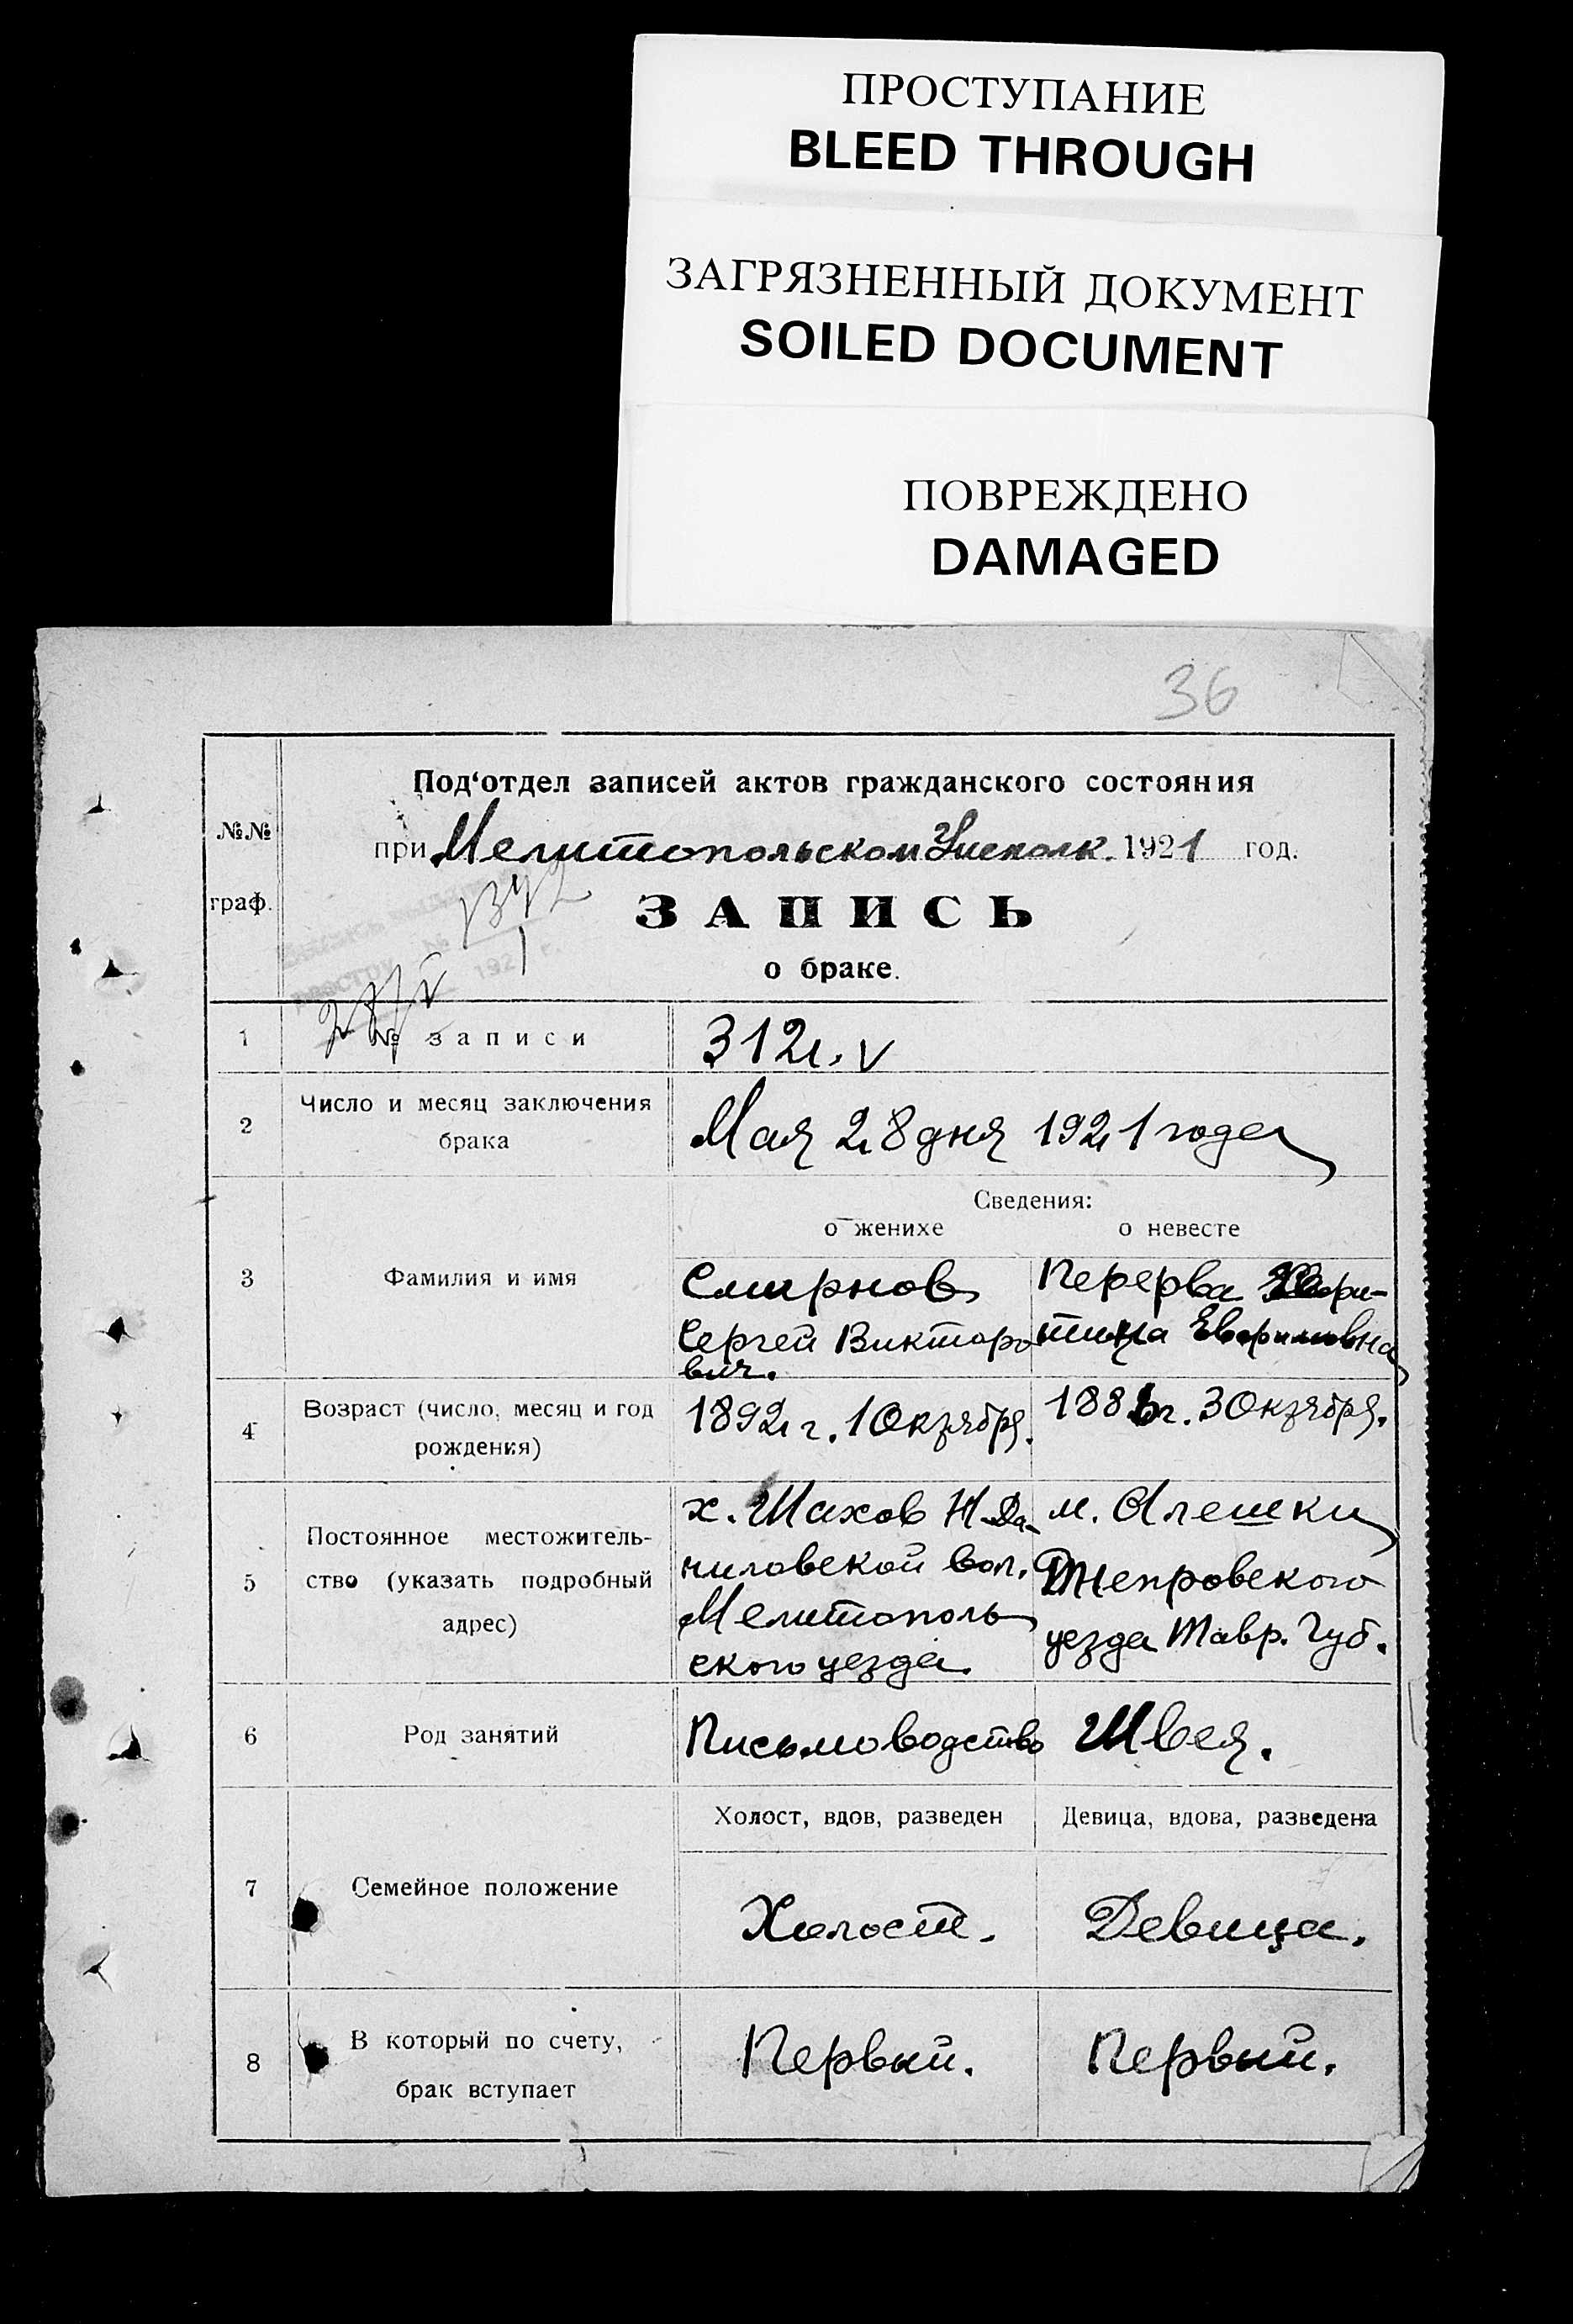 ПРОСТУПАНИЕ
BLEED THROUGH
ЗАГРЯЗНЕННЫЙ ДОКУМЕНТ
SOILED DOCUMENT
ПОВРЕЖДЕНО
DAMAGED
36
№№
граф.
Под'отдел записей актов гражданского состояния
при Мелитопольском Уисполк. 1921 год.
ЗАПИСЬ
о браке.
№ 1342
192 г.
1 № записи 312. v
2 Число и месяц заключения
брака
Мая 28 дня 1921 года
Сведения:
о женихе о невесте
3 Фамилия и имя
Смирнов
Сергей Викторо
вич.
Перерва Хари-
тина Евфимовна
4 Возраст (число, месяц и год
рождения)
1892 г. 1 Октября.
г. 3 Октября.
5 Постоянное местожитель-
ство (указать подробный
адрес)
х. Шахов Н-Да-
ниловской вол.
Мелитополь
ского уезда.
м. Алешки
Днепровского
уезда Тавр. Губ.
6 Род занятий
Письмоводство Швея.
Холост, вдов, разведен Девица, вдова, разведена
7 Семейное положение
Холост. Девица.
8 В который по счету,
брак вступает
Первый. Первый.